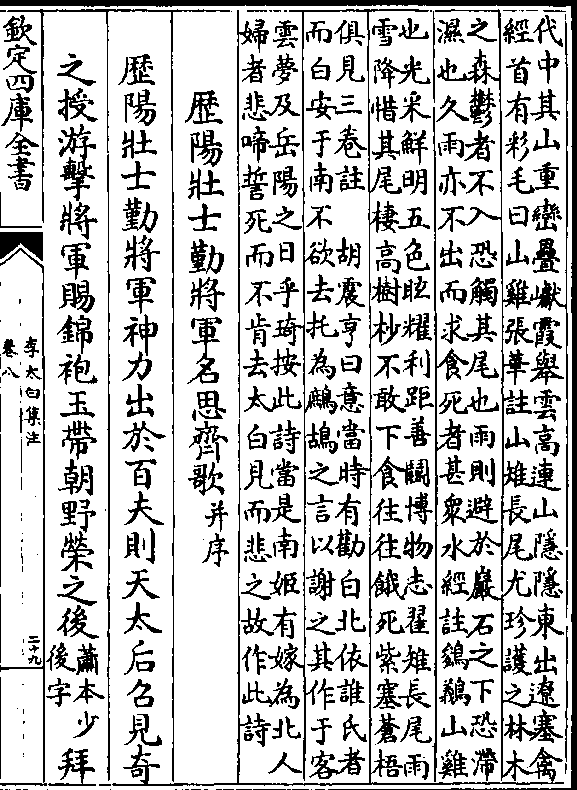 代中其山重巒疊巘霞舉雲高連山隱隱東出遼塞禽
經首有彩毛曰山雞張華註山雉長尾尤珍護之林木
之森鬱者不入恐觸其尾也雨則避於巖石之下恐滯
濕也久雨亦不出而求食死者甚衆水經註山雞
也光采鮮明五色眩耀利距善鬭博物志翟雉長尾雨
雪降惜其尾棲高樹杪不敢下食往往餓死紫塞蒼梧
俱見三卷註　胡震亨曰意當時有勸白北依誰氏者
而白安于南不欲去托為鷓鴣之言以謝之其作于客
雲夢及岳陽之日乎琦按此詩當是南姬有嫁為北人
婦者悲啼誓死而不肯去太白見而悲之故作此詩
歷陽壯士勤將軍名思齊歌并序
歷陽壯士勤將軍神力出於百夫則天太后召見奇
之授游擊將軍賜錦袍玉帶朝野榮之後蕭本少後字拜
欽定四庫全書
李太白集注
卷八
二十九